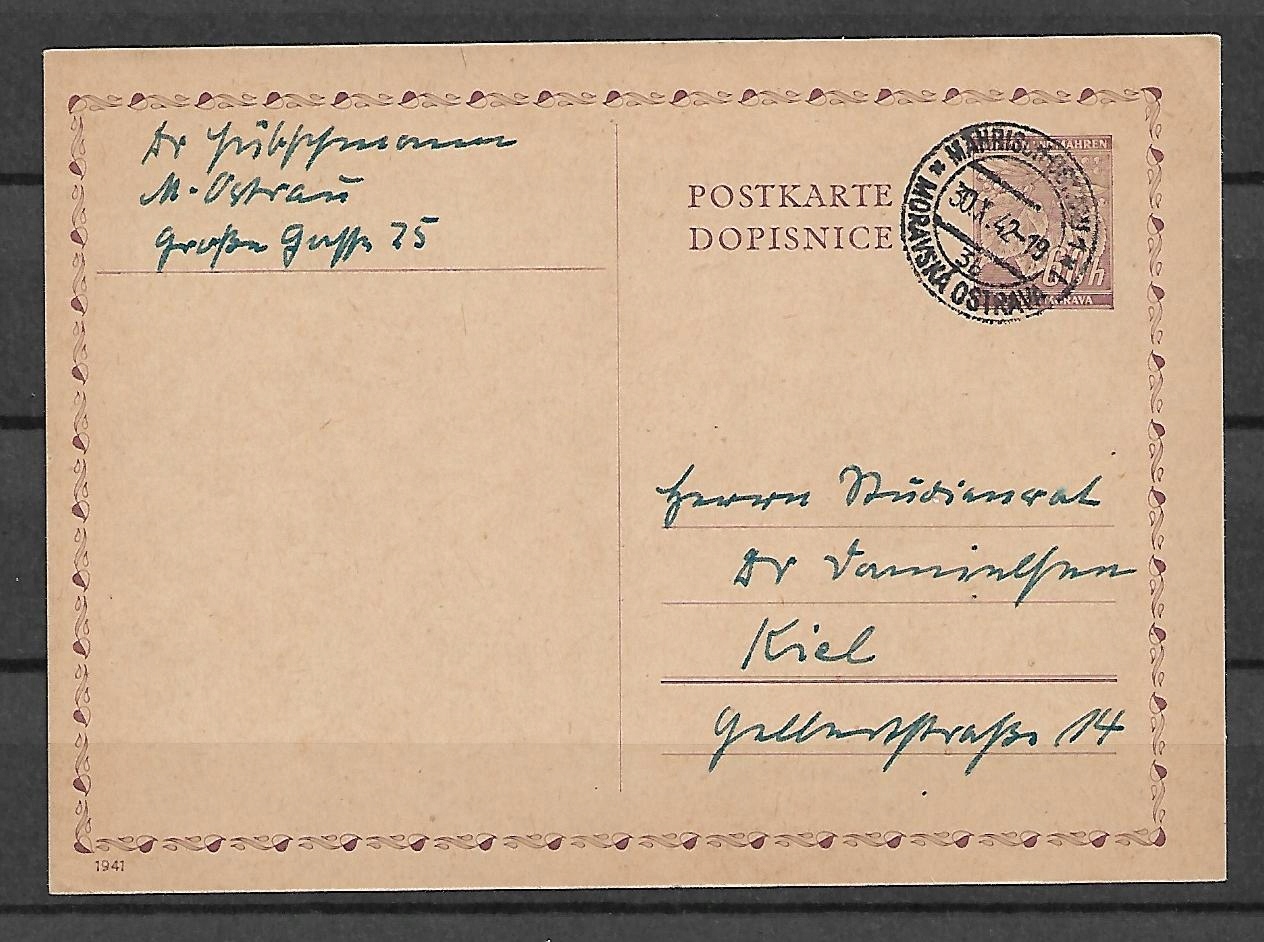 Dr Hübschmann
M. Ostrau
Große Gasse 25
POSTKARTE
DOPISNICE
MÄHRISCH OSTRAU 1
30.X.42-19
3b
MORAVSKÁ OSTRAVA 1
MÄHREN
60h
MORAVA
Herrn Studienrat
Dr Danielsen
Kiel
Gellertstraße 14
1941